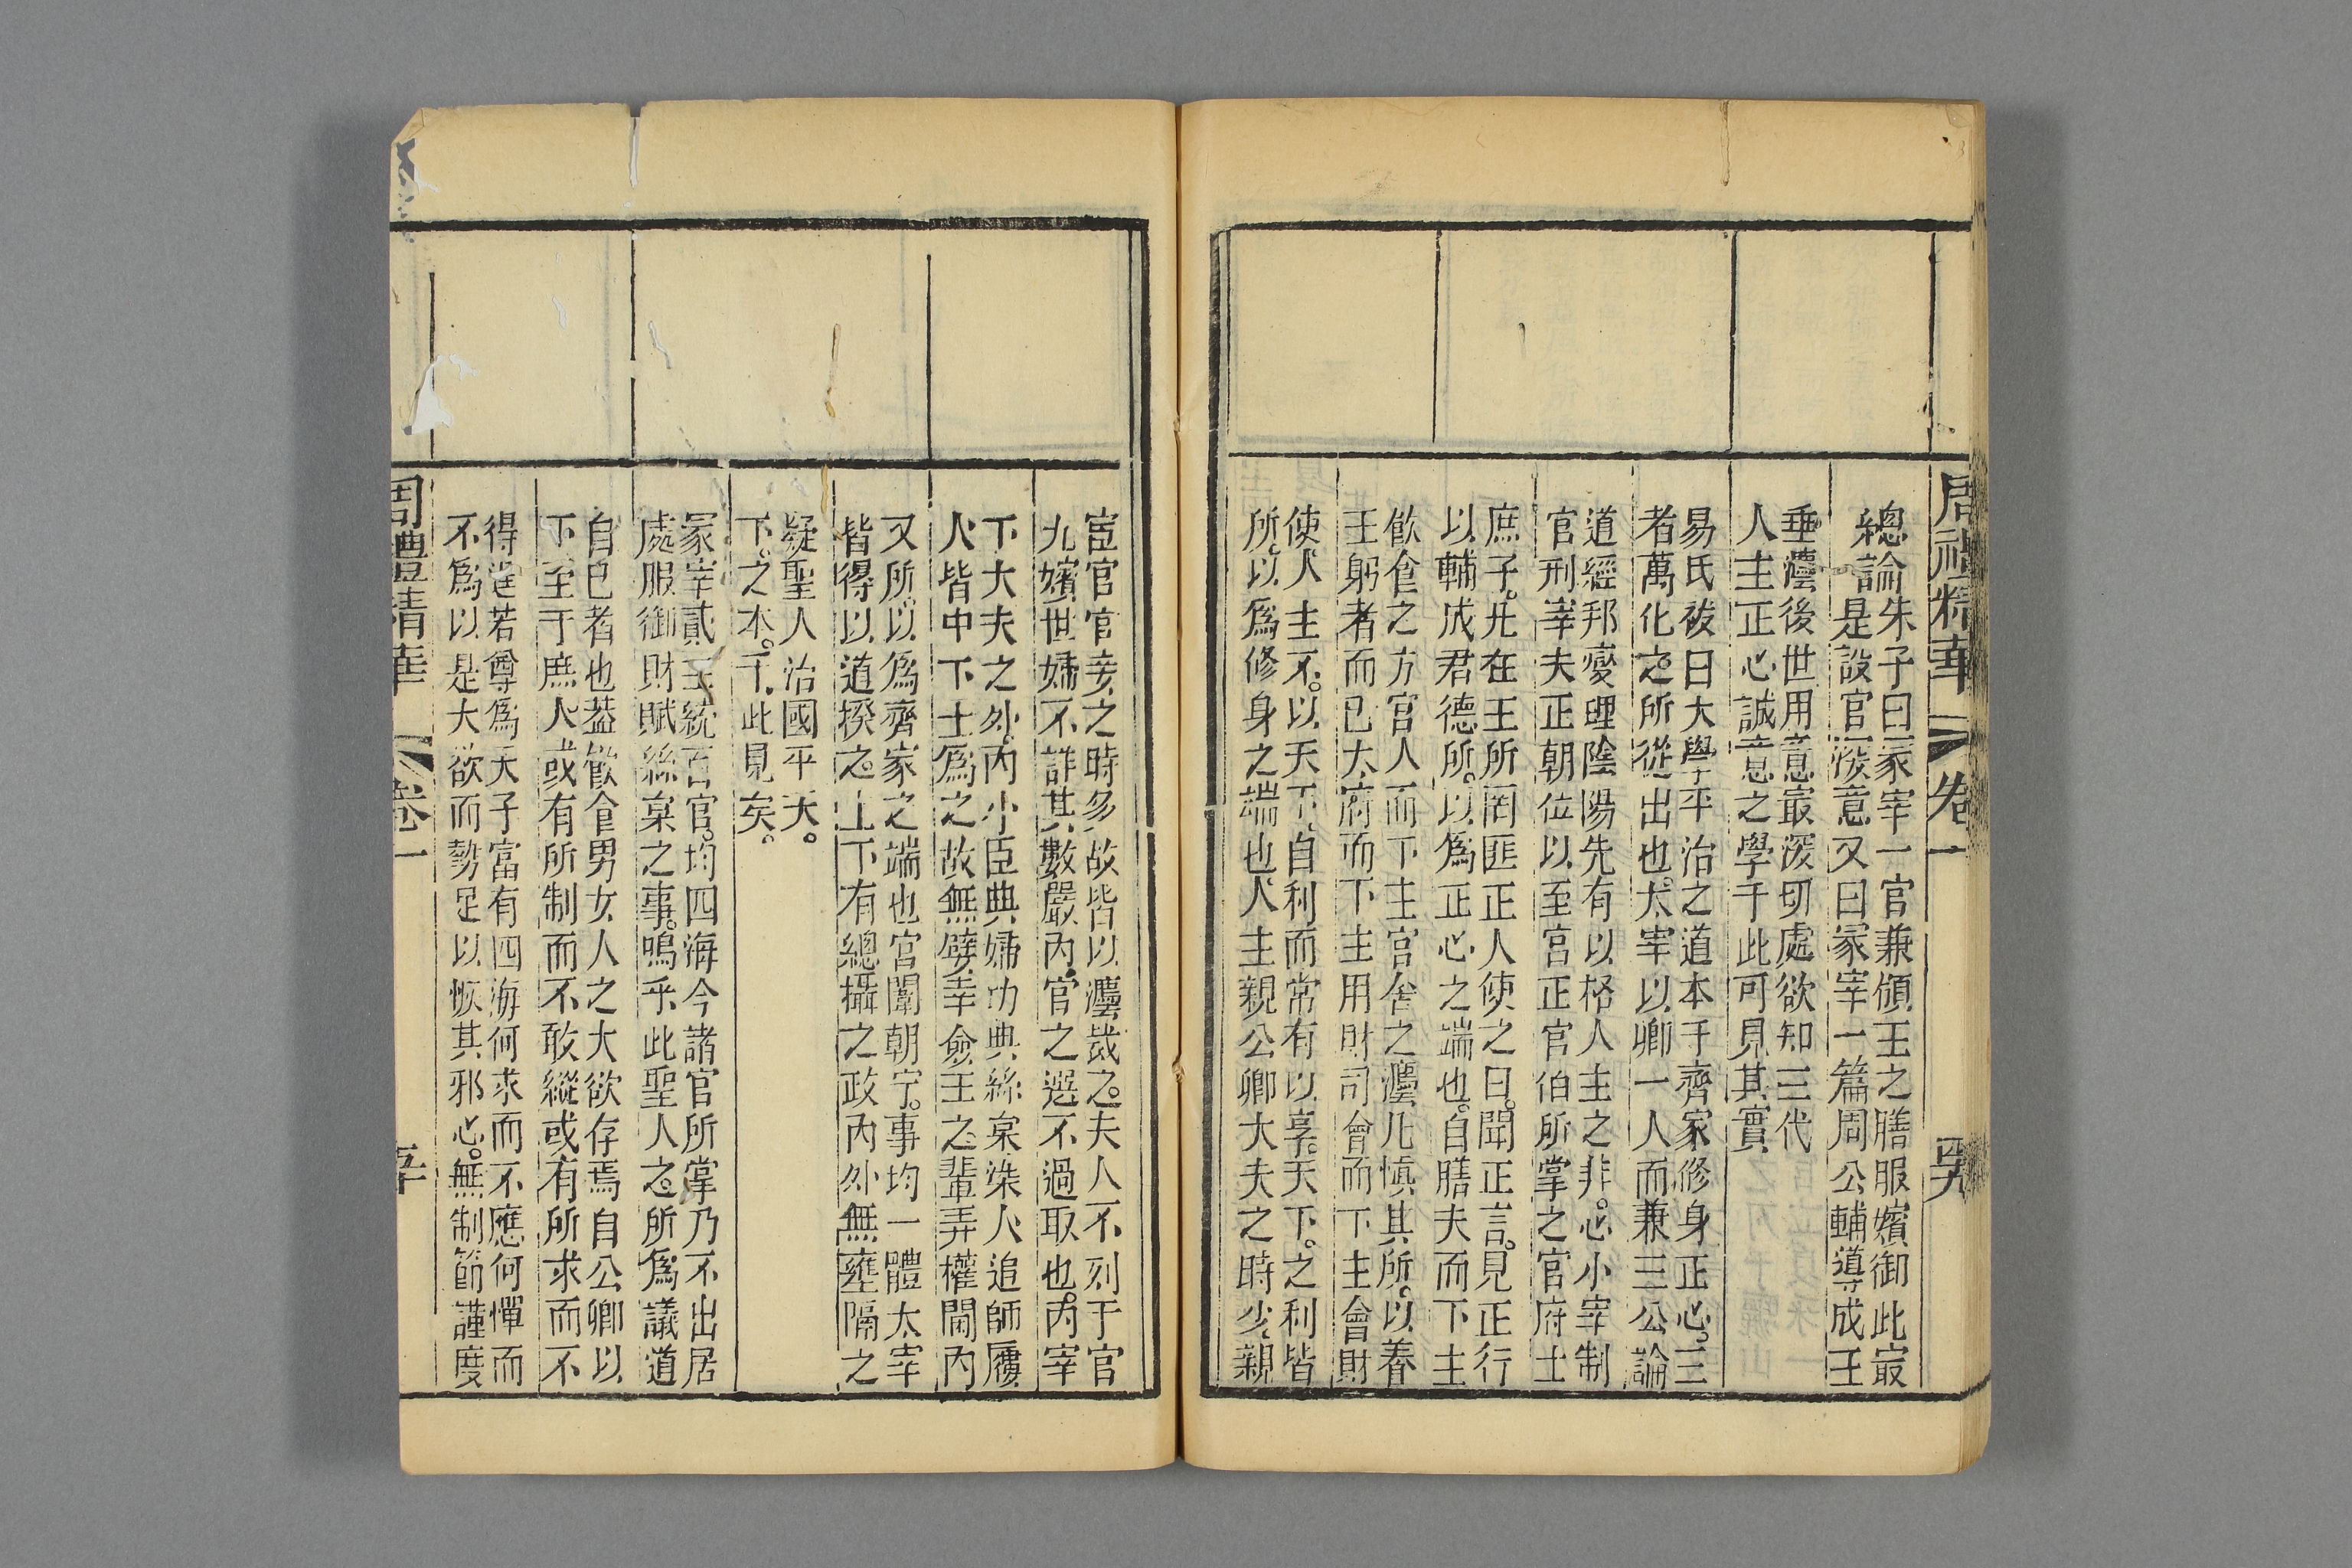 周禮精華 卷一 四九
總論朱子曰冡宰一官兼領王之膳服嬪御此最
是設官深意又曰冡宰一篇周公輔導成王
垂灋後世用意最深切處欲知三代
人主正心誠意之學于此可見其實
易氏祓曰大學平治之道本于齊家修身正心三
者萬化之所從出也太宰以卿一人而兼三公論
道經邦燮理陰陽先有以格人主之非心小宰制
官刑宰夫正朝位以至宮正宮伯所掌之官府士
庶子凡在王所罔匪正人使之日聞正言見正行
以輔成君德所以為正心之端也自膳夫而下主
飲食之方宮人而下主宮舍之灋凡愼其所以養
王躬者而已太府而下主用財司會而下主會財
使人主不以天下自利而常有以享天下之利皆
所以為修身之端也人主親公卿大夫之時少親
宦官宮妾之時多故皆以灋裁之夫人不列于官
九嬪世婦不詳其數嚴內官之選不過取也內宰
下大夫之外內小臣典婦功典絲枲染人追師屨
人皆中下士為之故無孽幸僉王之輩弄權閫內
又所以為齊家之端也宮闈朝宁事均一體太宰
皆得以道揆之上下有總攝之政內外無壅隔之
疑聖人治國平天
下之本于此見矣
冡宰貳王統百官均四海今諸官所掌乃不出居
處服御財賦絲枲之事嗚乎此聖人之所為議道
自已者也葢飲食男女人之大欲存焉自公卿以
下至于庶人或有所制而不敢縱或有所求而不
得逞若尊為天子富有四海何求而不應何憚而
不為以是大欲而勢足以恢其邪心無制節謹度
周禮精華 卷一 五十